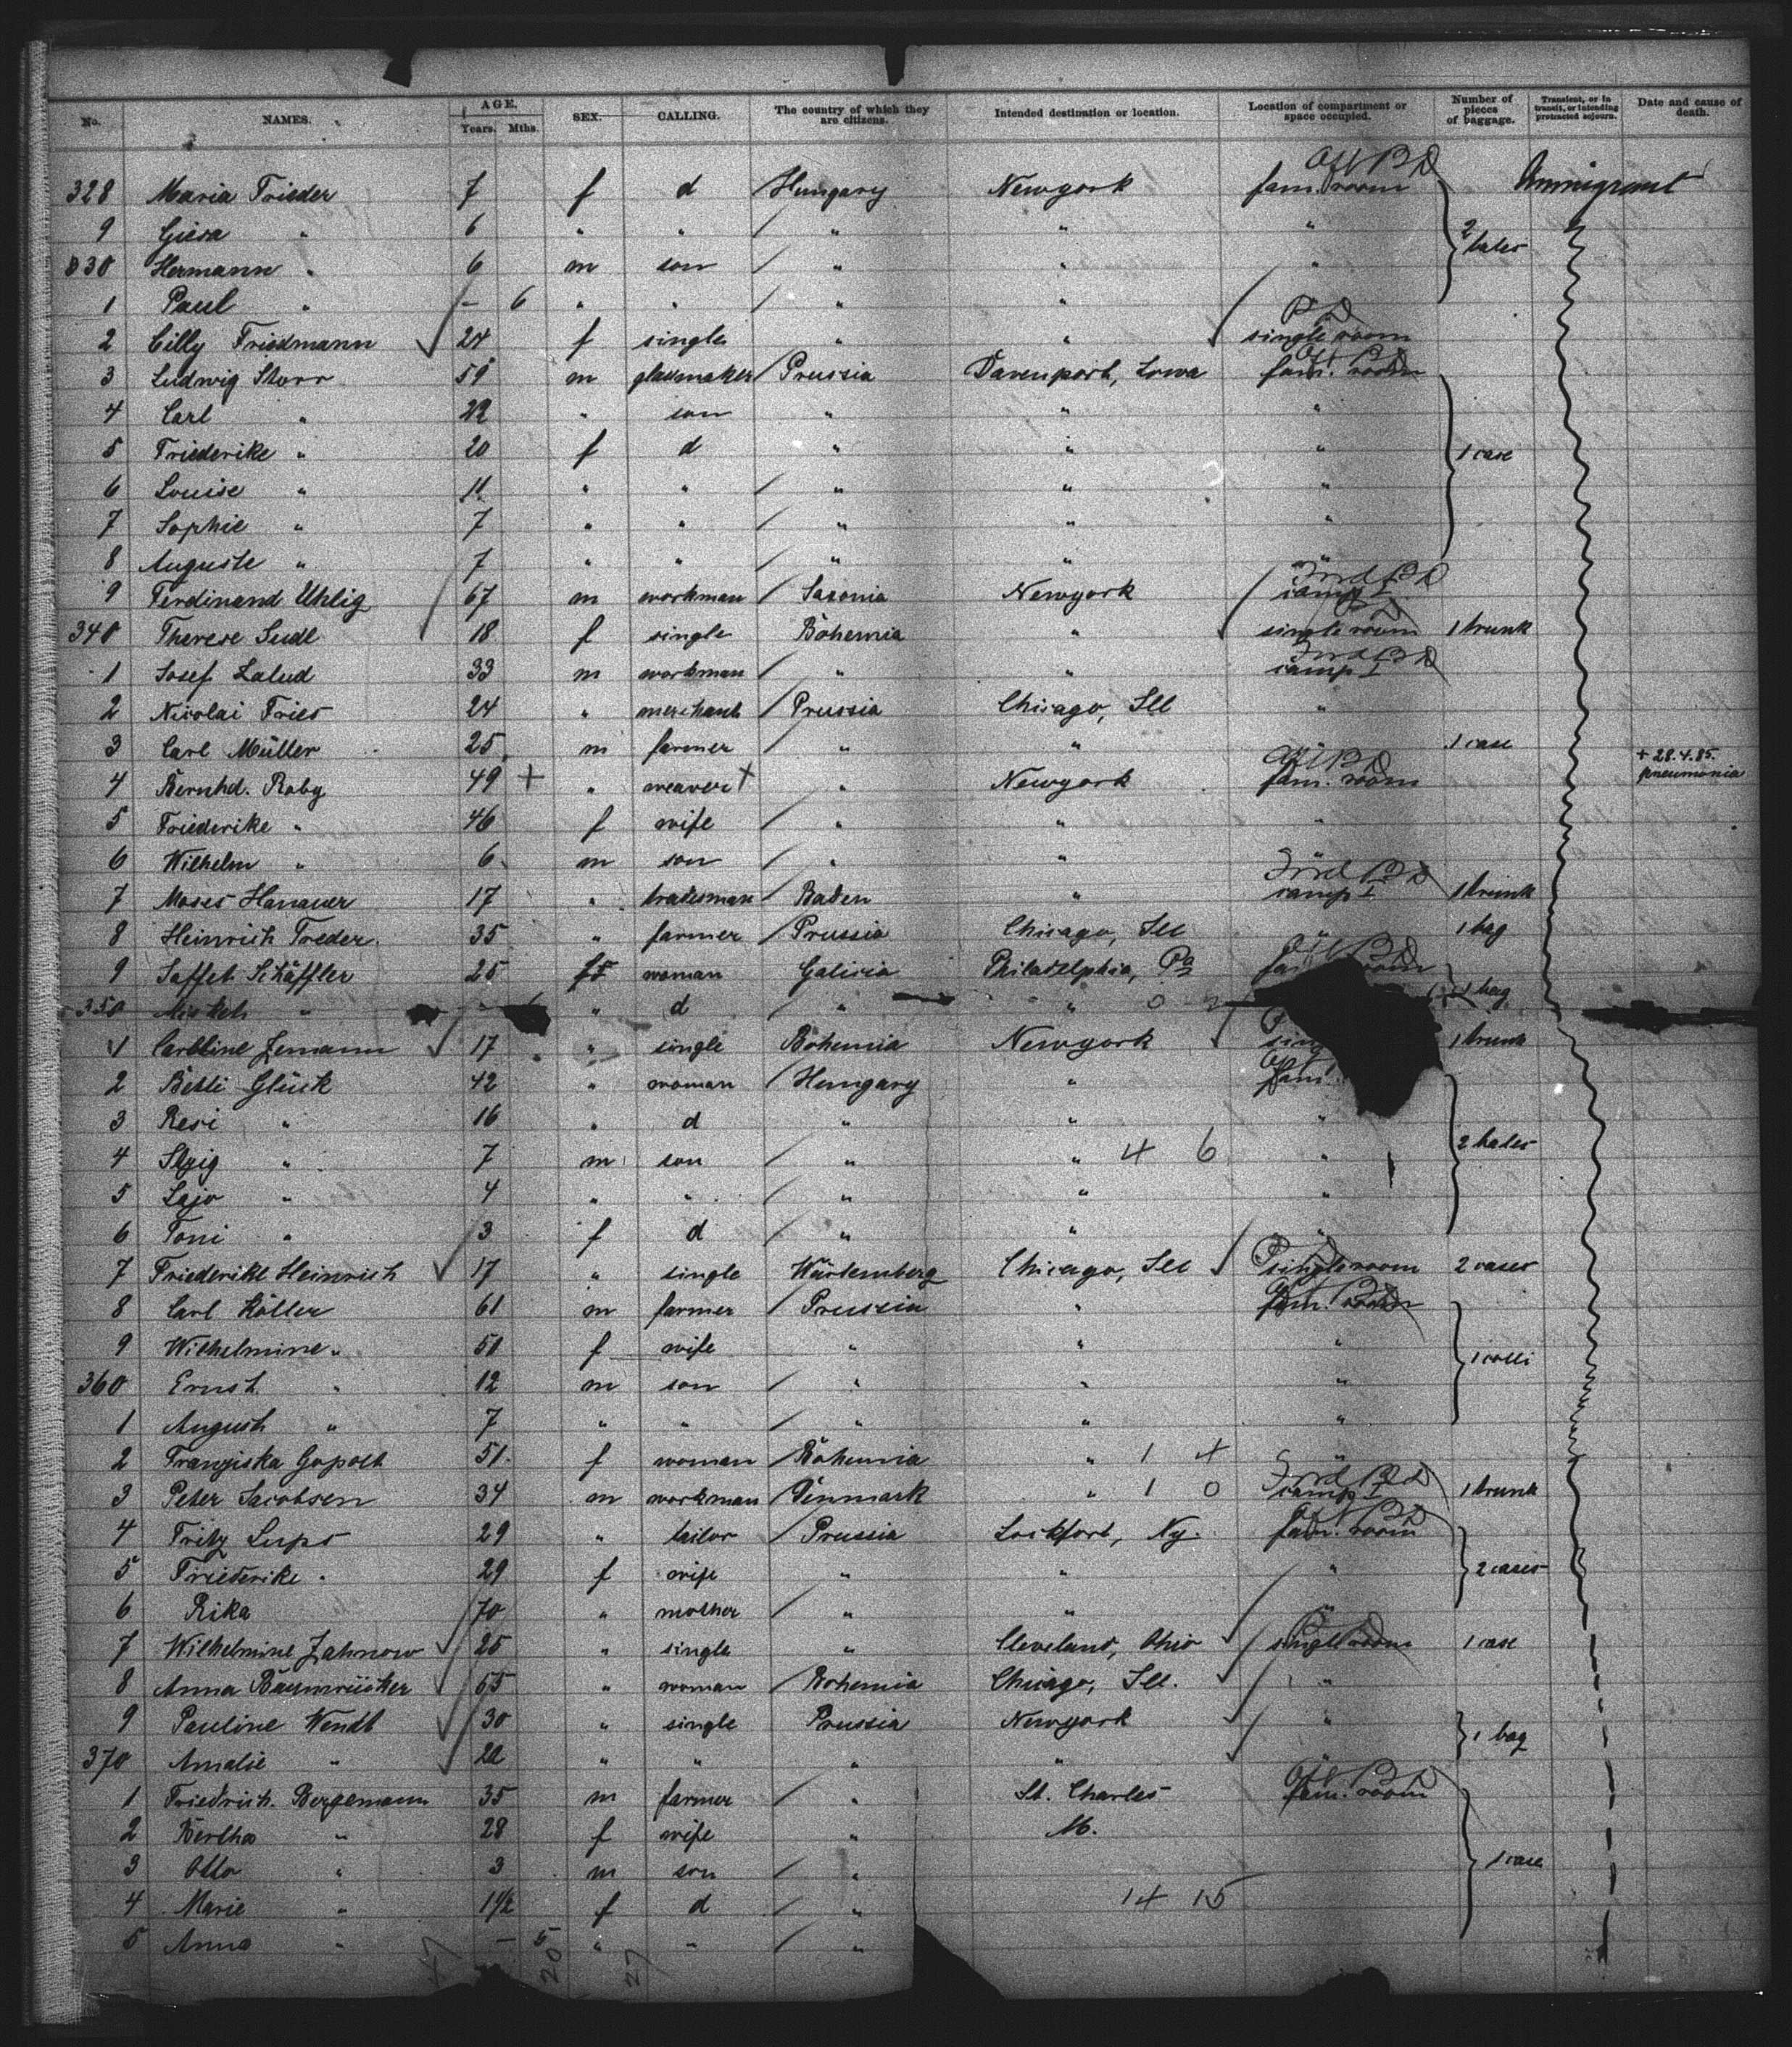 No. NAMES. AGE. Years. Mths. SEX. CALLING. The country of which they are citizens. Intended destination or location. Location of compartment or space occupied. Number of pieces of baggage. Transient, or in transit, or intending protracted sojourn. Date and cause of death.
328 Maria Frieder 7 f d Hungary Newyork fam. room Immigrant
9 Giesa " 6 " " " " " 2 bales
330 Hermann " 6 m son " " "
1 Paul " – 6 " " " "
2 Cilly Friedmann 24 f single " " single room
3 Ludwig Storr 59 m glassmaker Prussia Davenport, Iowa fam. room
4 Carl " 22 " son " " "
5 Friederike " 20 f d " " " 1 case
6 Louise " 11 " " " " "
7 Sophie " 7 " " " " "
8 Auguste " 7 " " " " "
9 Ferdinand Uhlig 67 m workman Saxonia Newyork camp I
340 Therese Sudl 18 f single Bohemia " single room 1 trunk
1 Josef Zalud 33 m workman " " camp I
2 Nicolai Fries 24 " merchant Prussia Chicago, Ill "
3 Carl Müller 25 m farmer " " " 1 case
4 Bernhd. Roby 49 + " weaver + " Newyork fam. room + 28.4.85. pneumonia
5 Friederike " 46 f wife " " "
6 Wilhelm " 6 m son " "
7 Moses Hanauer 17 " tradesman Baden " camp I 1 trunk
8 Heinrich Treder 35 " farmer Prussia Chicago, Ill " 1 bag
9 Saffet Schäffler 25 f woman Galicia Philadelphia, Pa room
350 " – " d " " 1 bag
1 Caroline Zemann 17 " single Bohemia Newyork 1 trunk
2 Betti Glück 42 " woman Hungary " fam.
3 Resi " 16 " d " " "
4 " 7 m son " " 4 6 " 2 bales
5 Lajo " 4 " " " " "
6 Toni " 3 f d " " "
7 Friederike Heinrich 17 " single Würtemberg Chicago, Ill single room 2 cases
8 Carl Köller 61 m farmer Prussia " fam. room
9 Wilhelmine " 51 f wife " " " 1 colli
360 Ernst " 12 m son " " "
1 August " 7 " " " " "
2 Franziska Gopolt 51 f woman Bohemia " 1 4 "
3 Peter Jacobsen 34 m workman Denmark " 1 0 camp I 1 trunk
4 Fritz Lups 29 " tailor Prussia Lockport, Ny. fam. room
5 Friederike " 29 f wife " " " 2 cases
6 Rika 70 " mother " " "
7 Wilhelmine Zahnow 25 " single " Cleveland, Ohio single room 1 case
8 Anna 65 " woman Bohemia Chicago, Ill. "
9 Pauline Wendt 30 " single Prussia Newyork " 1 bag
370 Amalie " 22 " " " " "
1 Friedrich Bergemann 35 m farmer " St. Charles fam. room
2 Bertha " 28 f wife " M.
3 Otto " 3 m son " 1 case
4 Marie " 1½ f d " 14 15
5 Anna " – 5 " " "
47 20 27